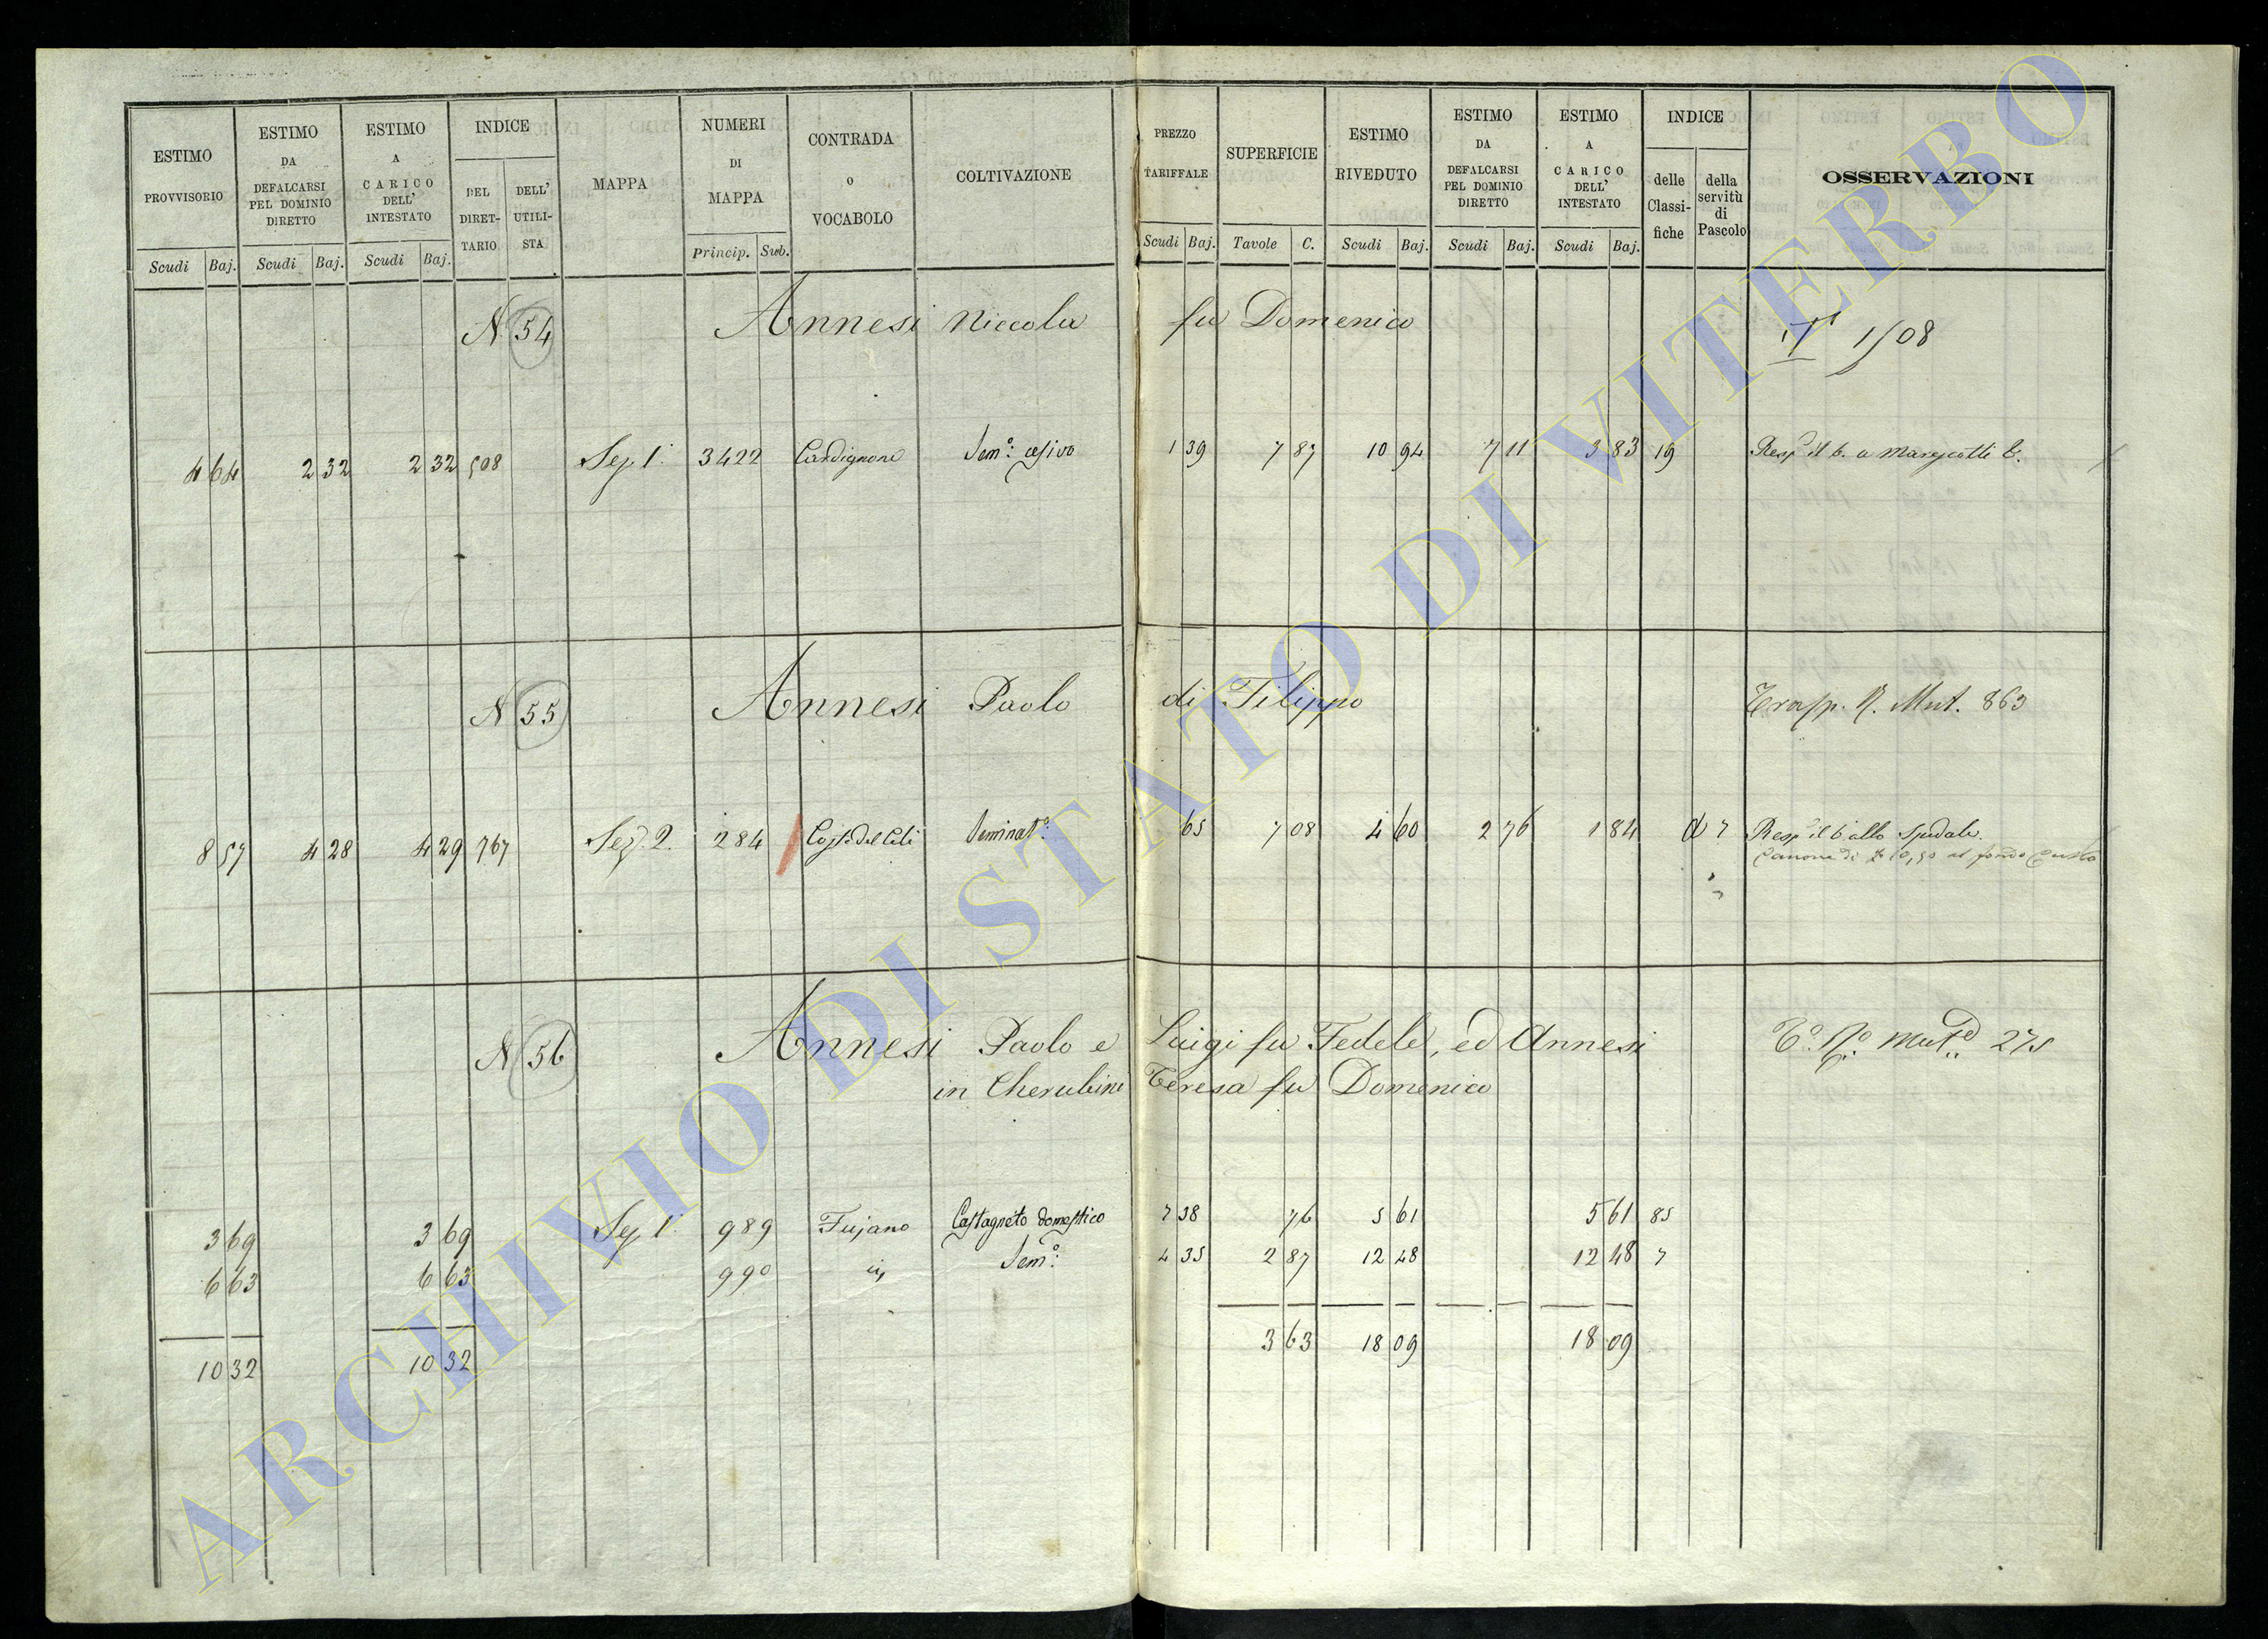 ESTIMO PROVVISORIO Scudi Baj.
ESTIMO DA DEFALCARSI PEL DOMINIO DIRETTO Scudi Baj.
ESTIMO A CARICO DELL' INTESTATO Scudi Baj.
INDICE DEL DIRET-TARIO DELL' UTILI-STA
MAPPA
NUMERI DI MAPPA Princip. Sub.
CONTRADA O VOCABOLO
COLTIVAZIONE
PREZZO TARIFFALE Scudi Baj.
SUPERFICIE Tavole C.
ESTIMO RIVEDUTO Scudi Baj.
ESTIMO DA DEFALCARSI PEL DOMINIO DIRETTO Scudi Baj.
ESTIMO A CARICO DELL' INTESTATO Scudi Baj.
INDICE delle Classi-fiche della servitù di Pascolo
OSSERVAZIONI
N 54 Annesi Niccola fu Domenico 1508
4 64 2 32 2 32 508 Sez 1. 3422 Cardignone Sem.o cesivo 1 39 7 87 10 94 7 11 3 83 19 Resp il b. a Marescotti
N 55 Annesi Paolo di Filippo Trasp. N. Mut. 863
8 57 4 28 4 29 767 Sez. 2. 284 Seminat.o 65 7 08 4 60 2 76 1 84 Resp il b allo Spedale.
Canone di 10,50 al fondo Culto
N 56 Annesi Paolo e Luigi fu Fedele, ed Annesi 275
in Cherubini Teresa fu Domenico
3 69 3 69 Sez 1. 989 Fujano Castagneto domestico 7 38 76 5 61 5 61 85
6 63 6 63 990 Sem.o 4 35 2 87 12 48 12 48 7
10 32 10 32 3 63 18 09 18 09
ARCHIVIO DI STATO DI VITERBO